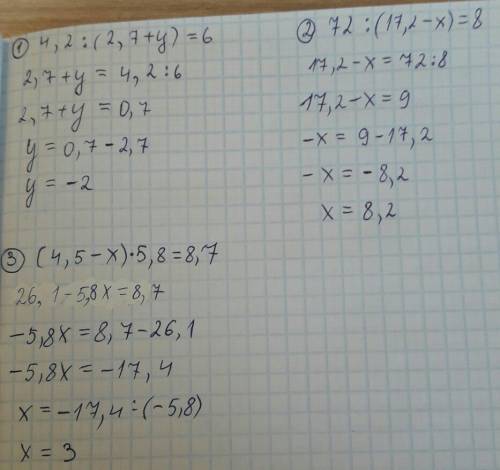 ① 4,2 : (2,7+y) = 6
2,7+y = 4,2 : 6
2,7+y = 0,7
y = 0,7 - 2,7
y = -2
② 72 : (17,2-x) = 8
17,2-x = 72:8
17,2-x = 9
-x = 9-17,2
-x = -8,2
x = 8,2
③ (4,5-x)·5,8 = 8,7
26,1-5,8x = 8,7
-5,8x = 8,7-26,1
-5,8x = -17,4
x = -17,4 ÷ (-5,8)
x = 3